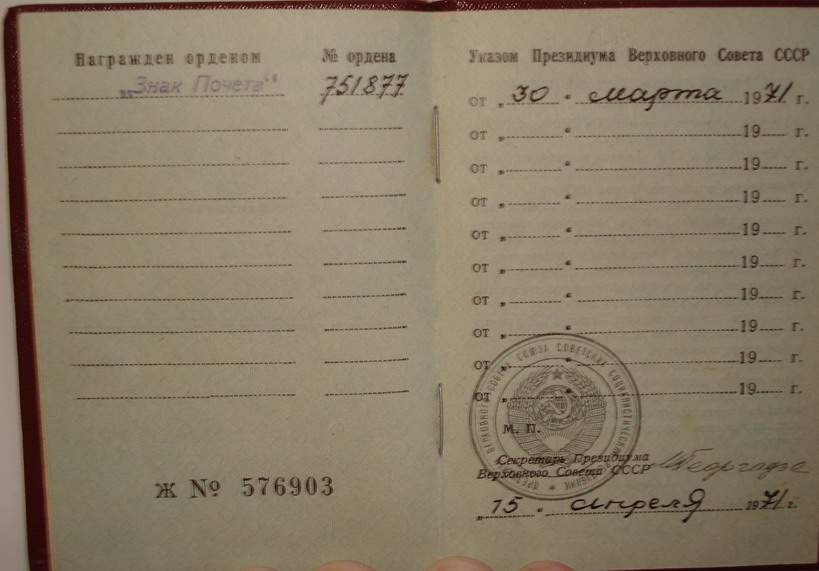 Награжден орденом
№ ордена
„Знак Почета“
751877
Ж № 576903
Указом Президиума Верховного Совета СССР
от „ 30 “ марта 1971 г.
от „ “ 19 г.
от „ “ 19 г.
от „ “ 19 г.
от „ “ 19 г.
от „ “ 19 г.
от „ “ 19 г.
от „ “ 19 г.
от „ “ 19 г.
от „ “ 19 г.
ВЕРХОВНОГО СОВЕТА СОЮЗА СОВЕТСКИХ СОЦИАЛИСТИЧЕСКИХ
М. П.
Секретарь Президиума
Верховного Совета СССР
МГеоргадзе
„ 15 “ апреля 1971 г.